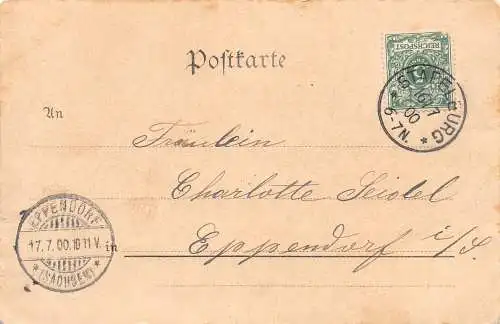 Postkarte
REICHSPOST
5
STAPELBURG
16/7
00
6-7N.
An
Fräulein
Charlotte Seidel
in
Eppendorf i/S.
EPPENDORF
17.7.00.10 11 V.
*(SACHSEN)*